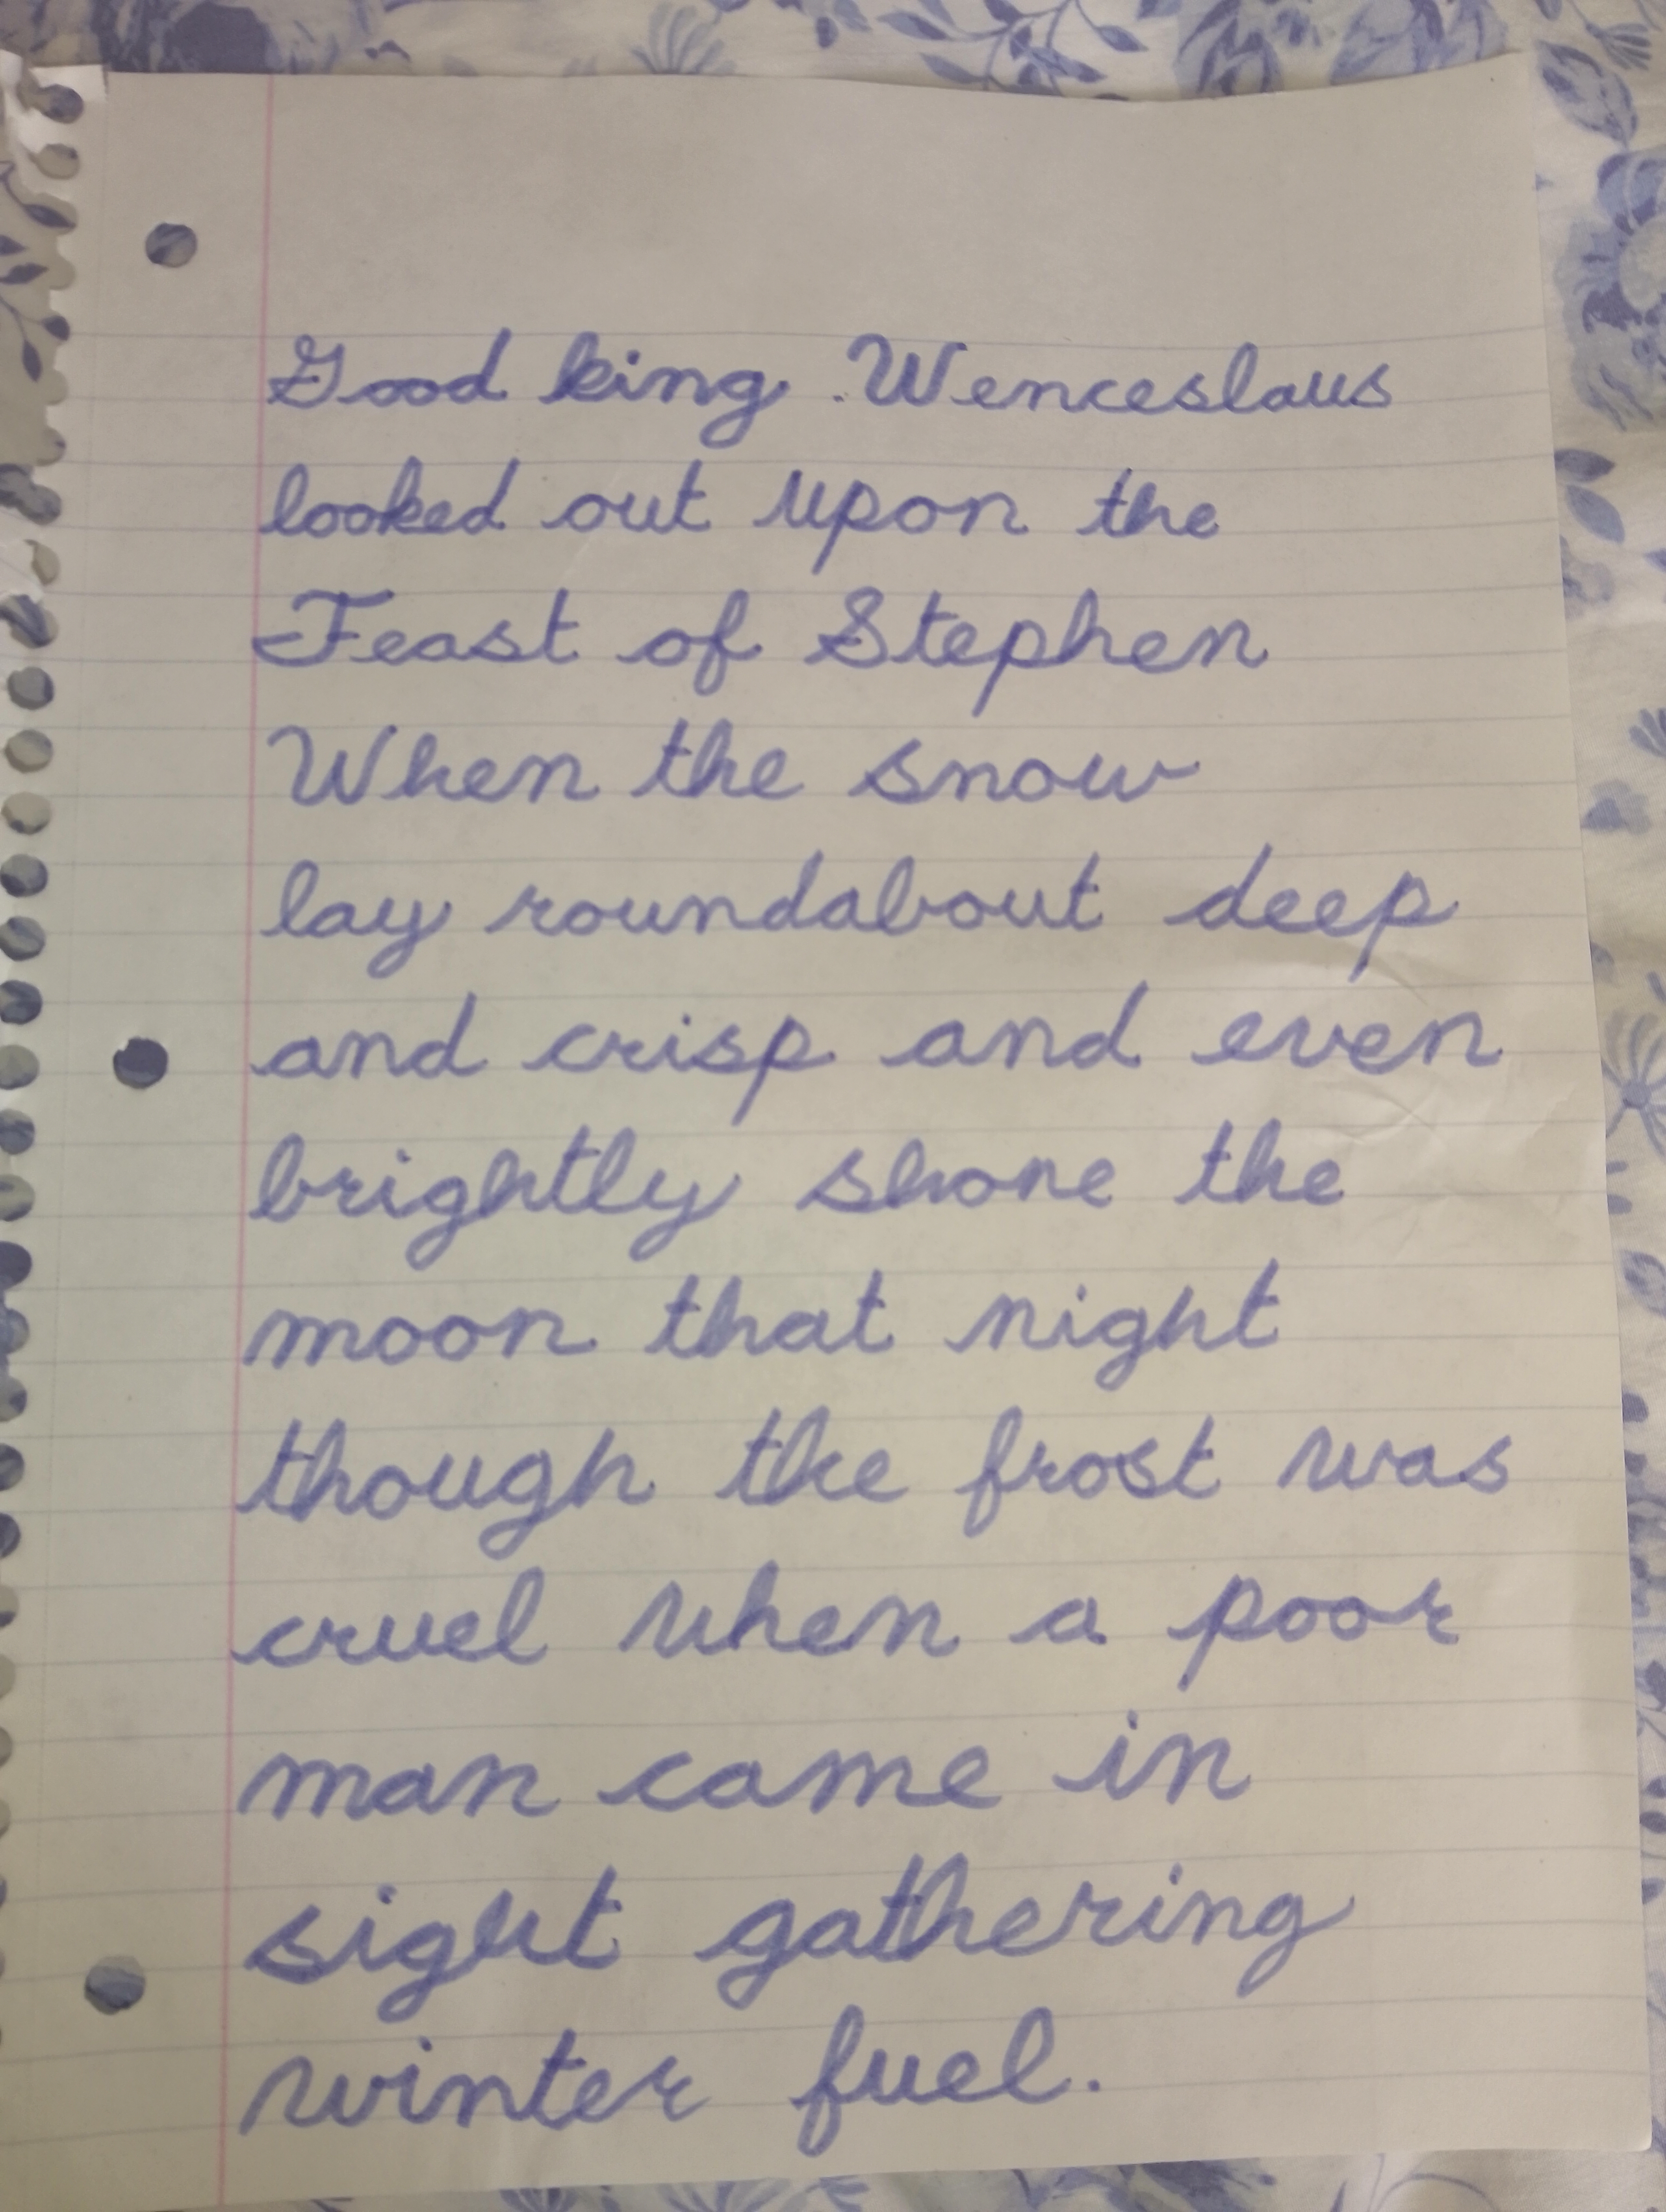 Good king Wenceslaus
looked out upon the
Feast of Stephen
When the snow
lay roundabout deep
and crisp and even
brightly shone the
moon that night
though the frost was
cruel when a poor
man came in
sight gathering
winter fuel.